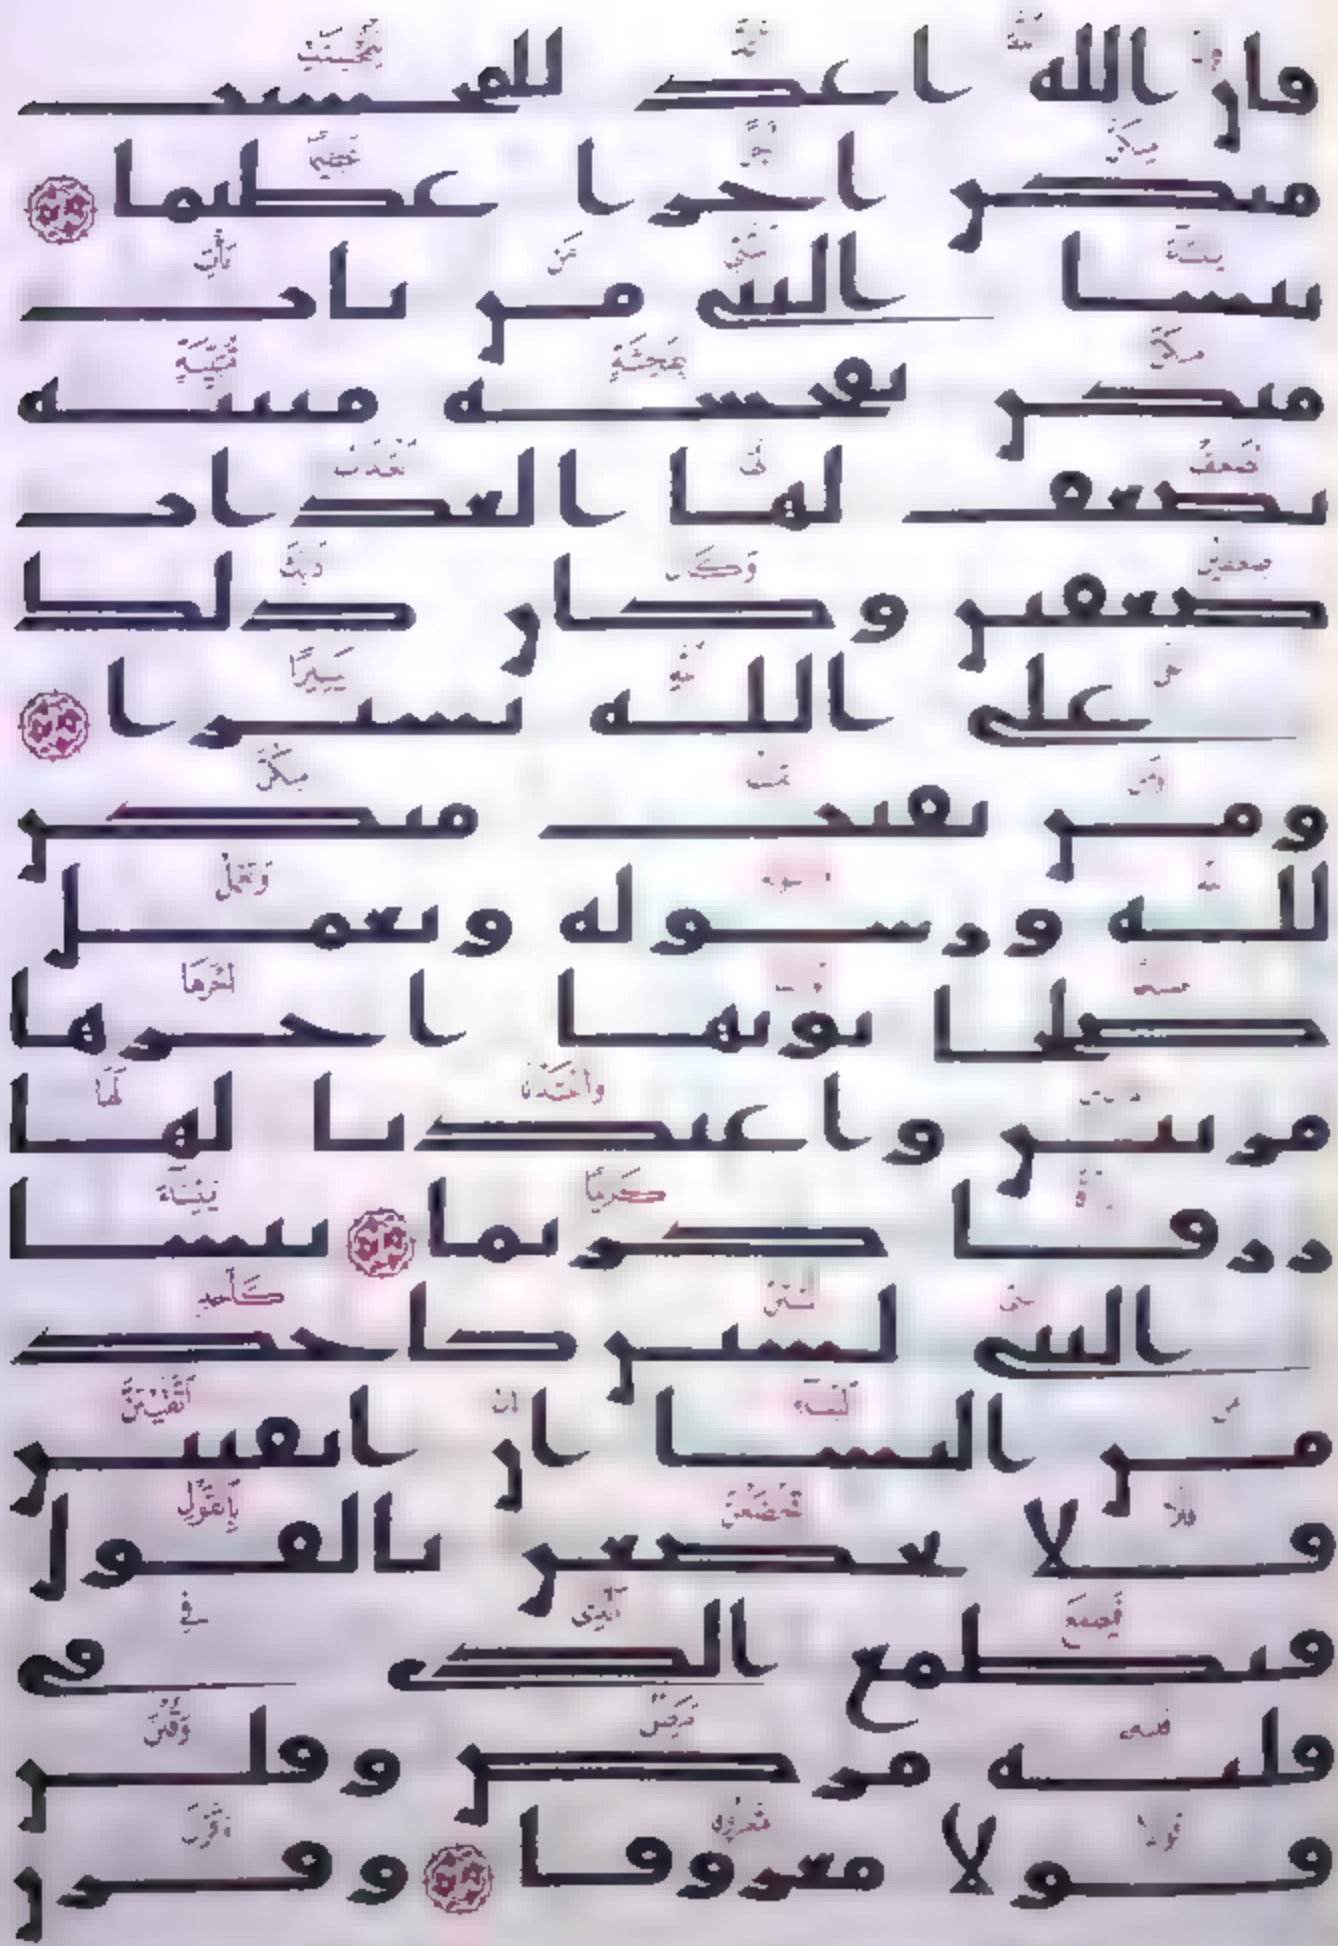 فان الله اعد للمحسنت
منكن اجرا عظيما
ينسا النبي من يات
منكن بفحشة مبينة
يضعف لها العذاب
ضعفين وكان ذلك
على الله يسيرا
ومن يقنت منكن
لله ورسوله وتعمل
صلحا نوتها اجرها
مرتين واعتدنا لها
رزقا كريما ينسا
النبي لستن كاحد
من النسا ان اتقيتن
فلا تخضعن بالقول
فيطمع الذي في
قلبه مرض وقلن
قولا معروفا وقرن